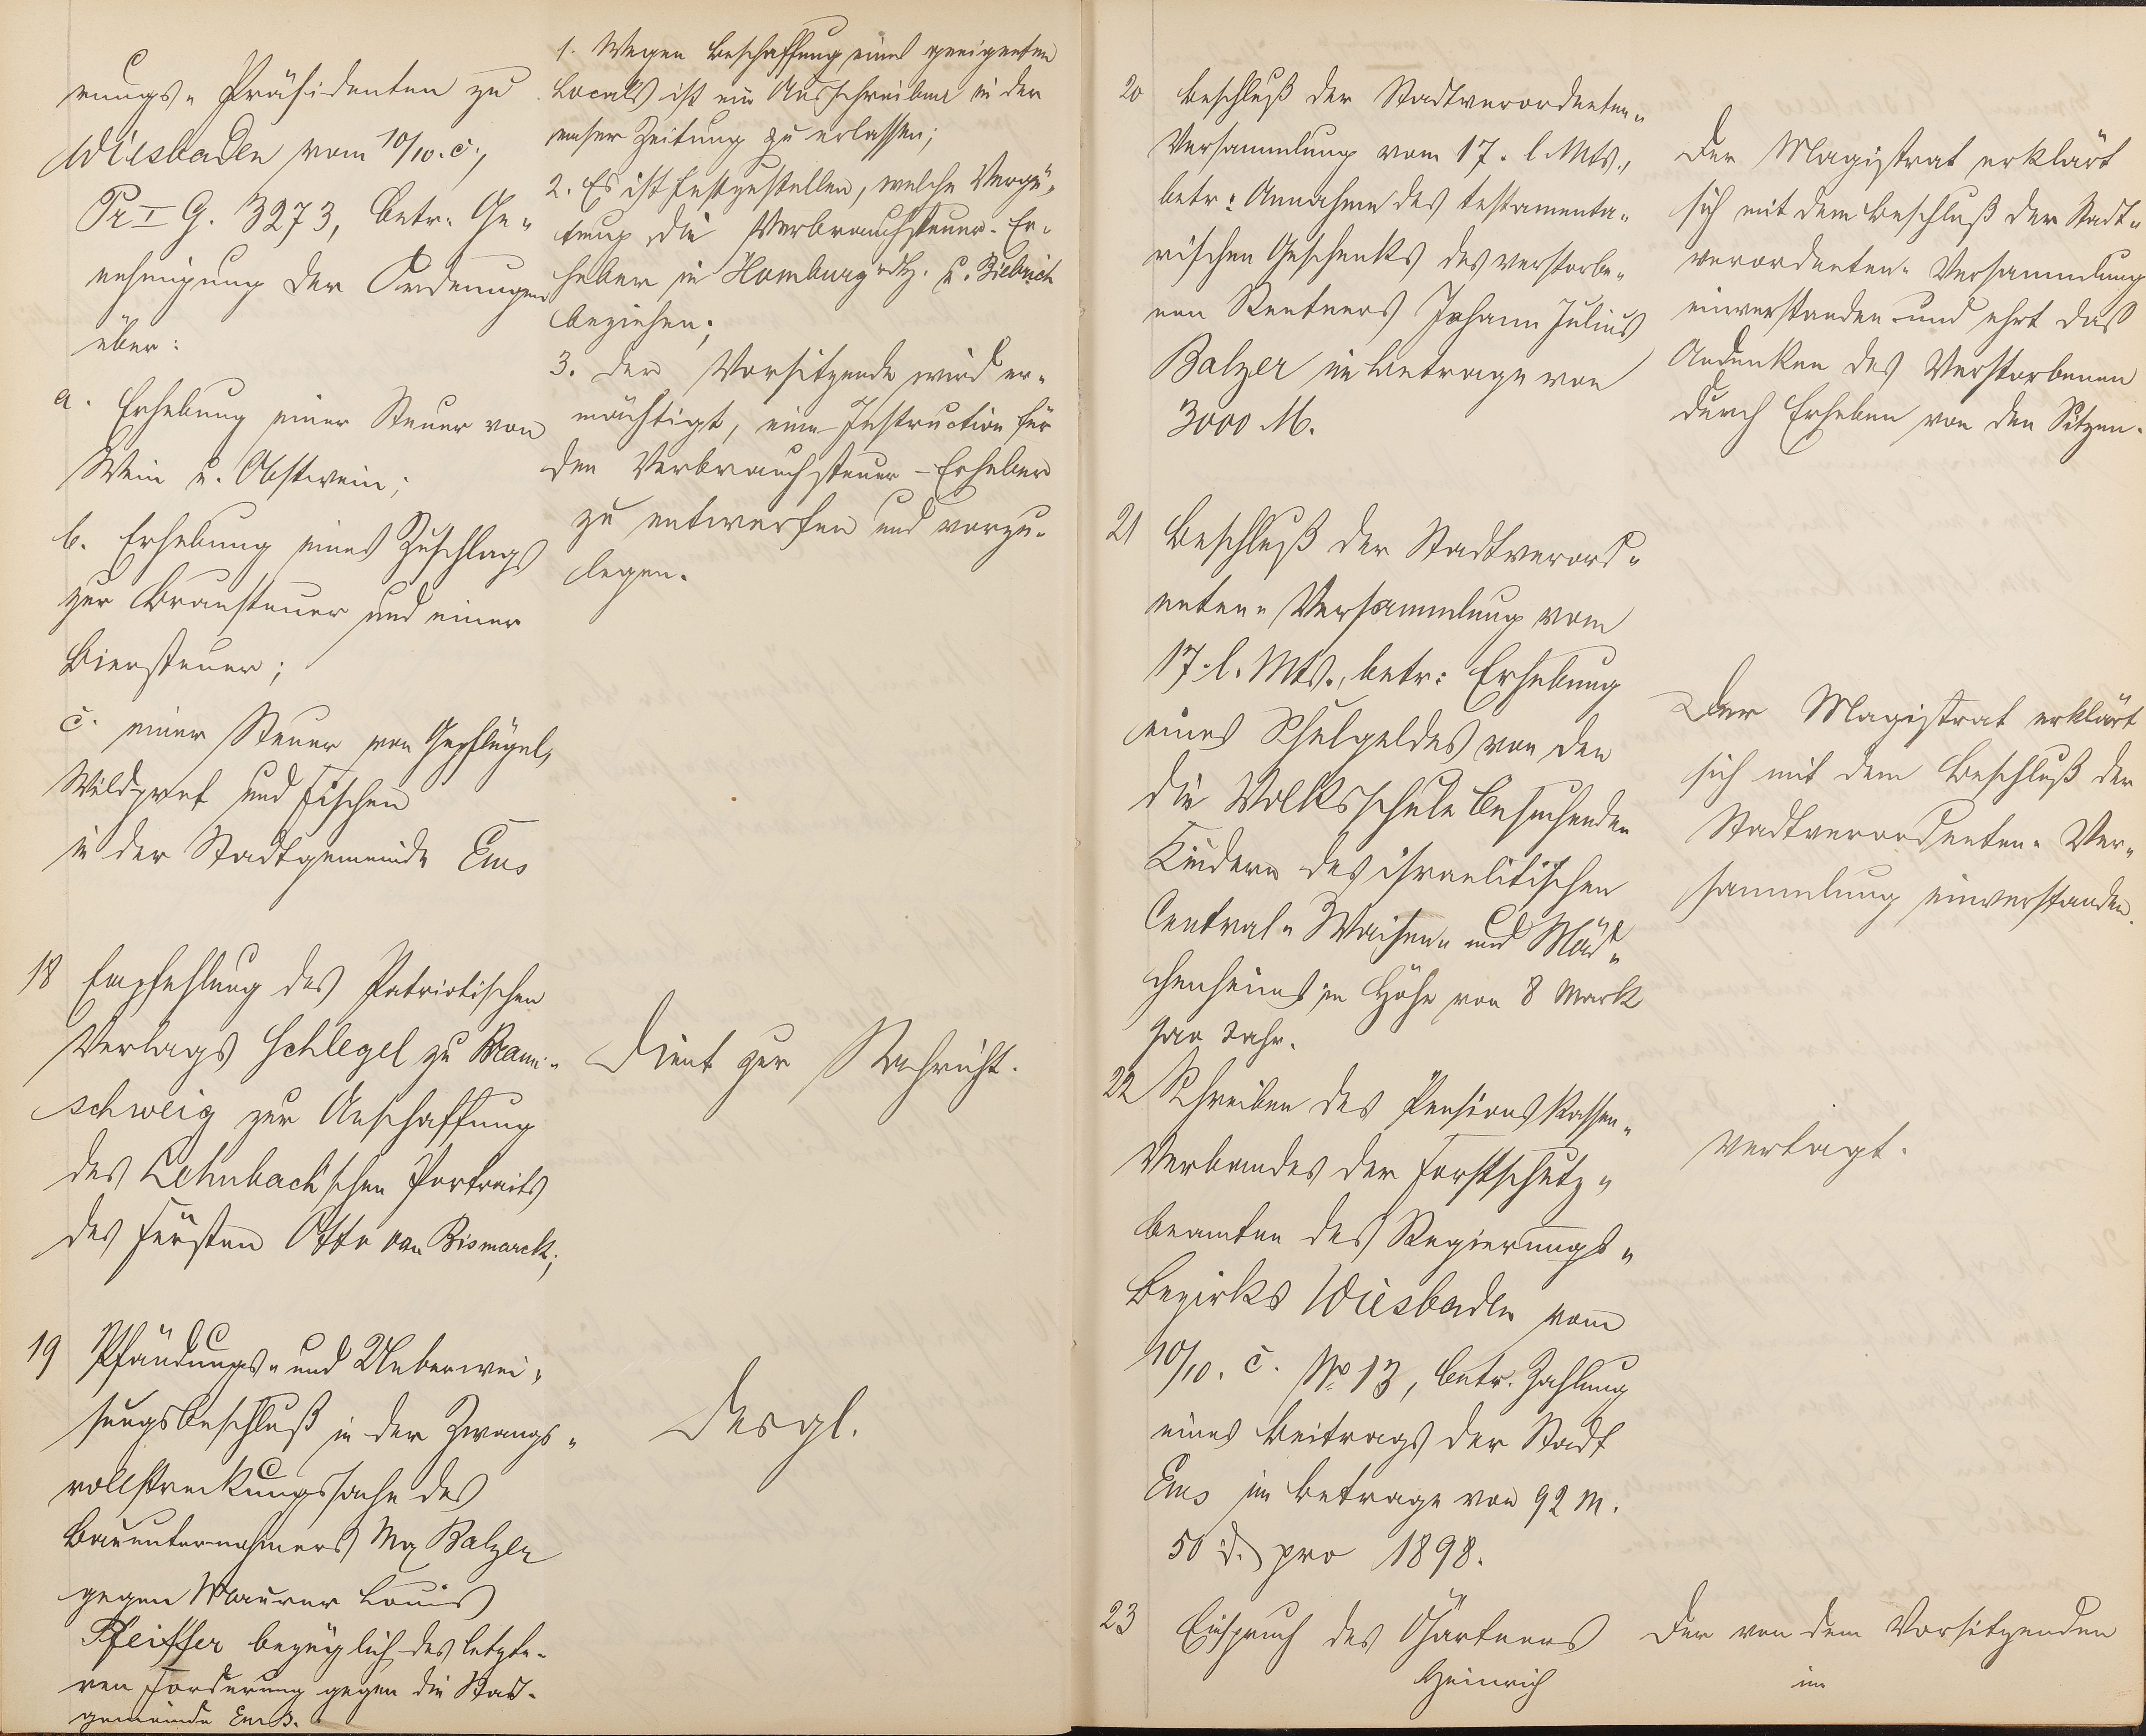 rungs- Präsidenten zu
Wiesbaden vom 10/10. c.,
Pr I G. 3273, betr. Ge-
nehmigung der Ordnungen
über:
a. Erhebung einer Steuer von
Wein u. Obstwein;
b. Erhebung eines Zuschlags
zur Brausteuer und einer
Biersteuer;
c. einer Steuer von Geflügel,
Wildpret und Fischen
in der Stadtgemeinde Ems
1. Wegen Beschaffung eines geeigneten
Locals ist ein Ausschreiben in der
emser Zeitung zu erlassen;
2. Es ist festzustellen, welche Vergü-
tung die Verbrauchsteuer-Er-
heber in Homburg vdH. u. Biebrich
beziehen;
3. der Vorsitzende wird er-
mächtigt, eine Instruction für
den Verbrauchsteuer-Erheber
zu entwerfen und vorzu-
legen.
18 Empfehlung des Patriotischen
Verlags Schlegel zu Braun-
schweig zur Anschaffung
des Lehnbach'schen Portraits
des Fürsten Otto von Bismarck;
Dient zur Nachricht.
19 Pfändungs- und Ueberwei-
sungsbeschluß in der Zwangs-
vollstreckungssache des
Bauunternehmers Balzer
gegen Maurer Louis
Pfeiffer bezüglich des letzte-
ren Forderung gegen die Stad-
gemeinde Ems.
Desgl.
20 Beschluß der Stadtverordneten-
Versammlung vom 17. l. Mts.,
betr: Annahme des testamenta-
rischen Geschenks des verstorbe-
nen Rentners Johann Julius
Balzer im Betrage von
3000 M.
Der Magistrat erklärt
sich mit dem Beschluß der Stadt-
verordneten- Versammlung
einverstanden und ehrt das
Andenken des Verstorbenen
durch Erheben von den Sitzen.
21 Beschluß der Stadtverord-
neten- Versammlung vom
17. l. Mts., betr: Erhebung
eines Schulgeldes von den
die Volksschule besuchenden
Kindern des israelitischen
Central- Waisen- und Mäd-
chenheims in Höhe von 8 Mark
pro Jahr.
Der Magistrat erklärt
sich mit dem Beschluß der
Stadtverordneten- Ver-
sammlung einverstanden.
22 Schreiben des Pensionskassen-
Verbandes der Forstschutz-
beamten des Regierungs-
Bezirks Wiesbaden vom
10/10. c. No 13, betr. Zahlung
eines Beitrags der Stadt
Ems im Betrage von 92 M.
50 d. pro 1898.
vertagt.
23 Einspruch des Gärtners
Heinrich
Der von dem Vorsitzenden
im